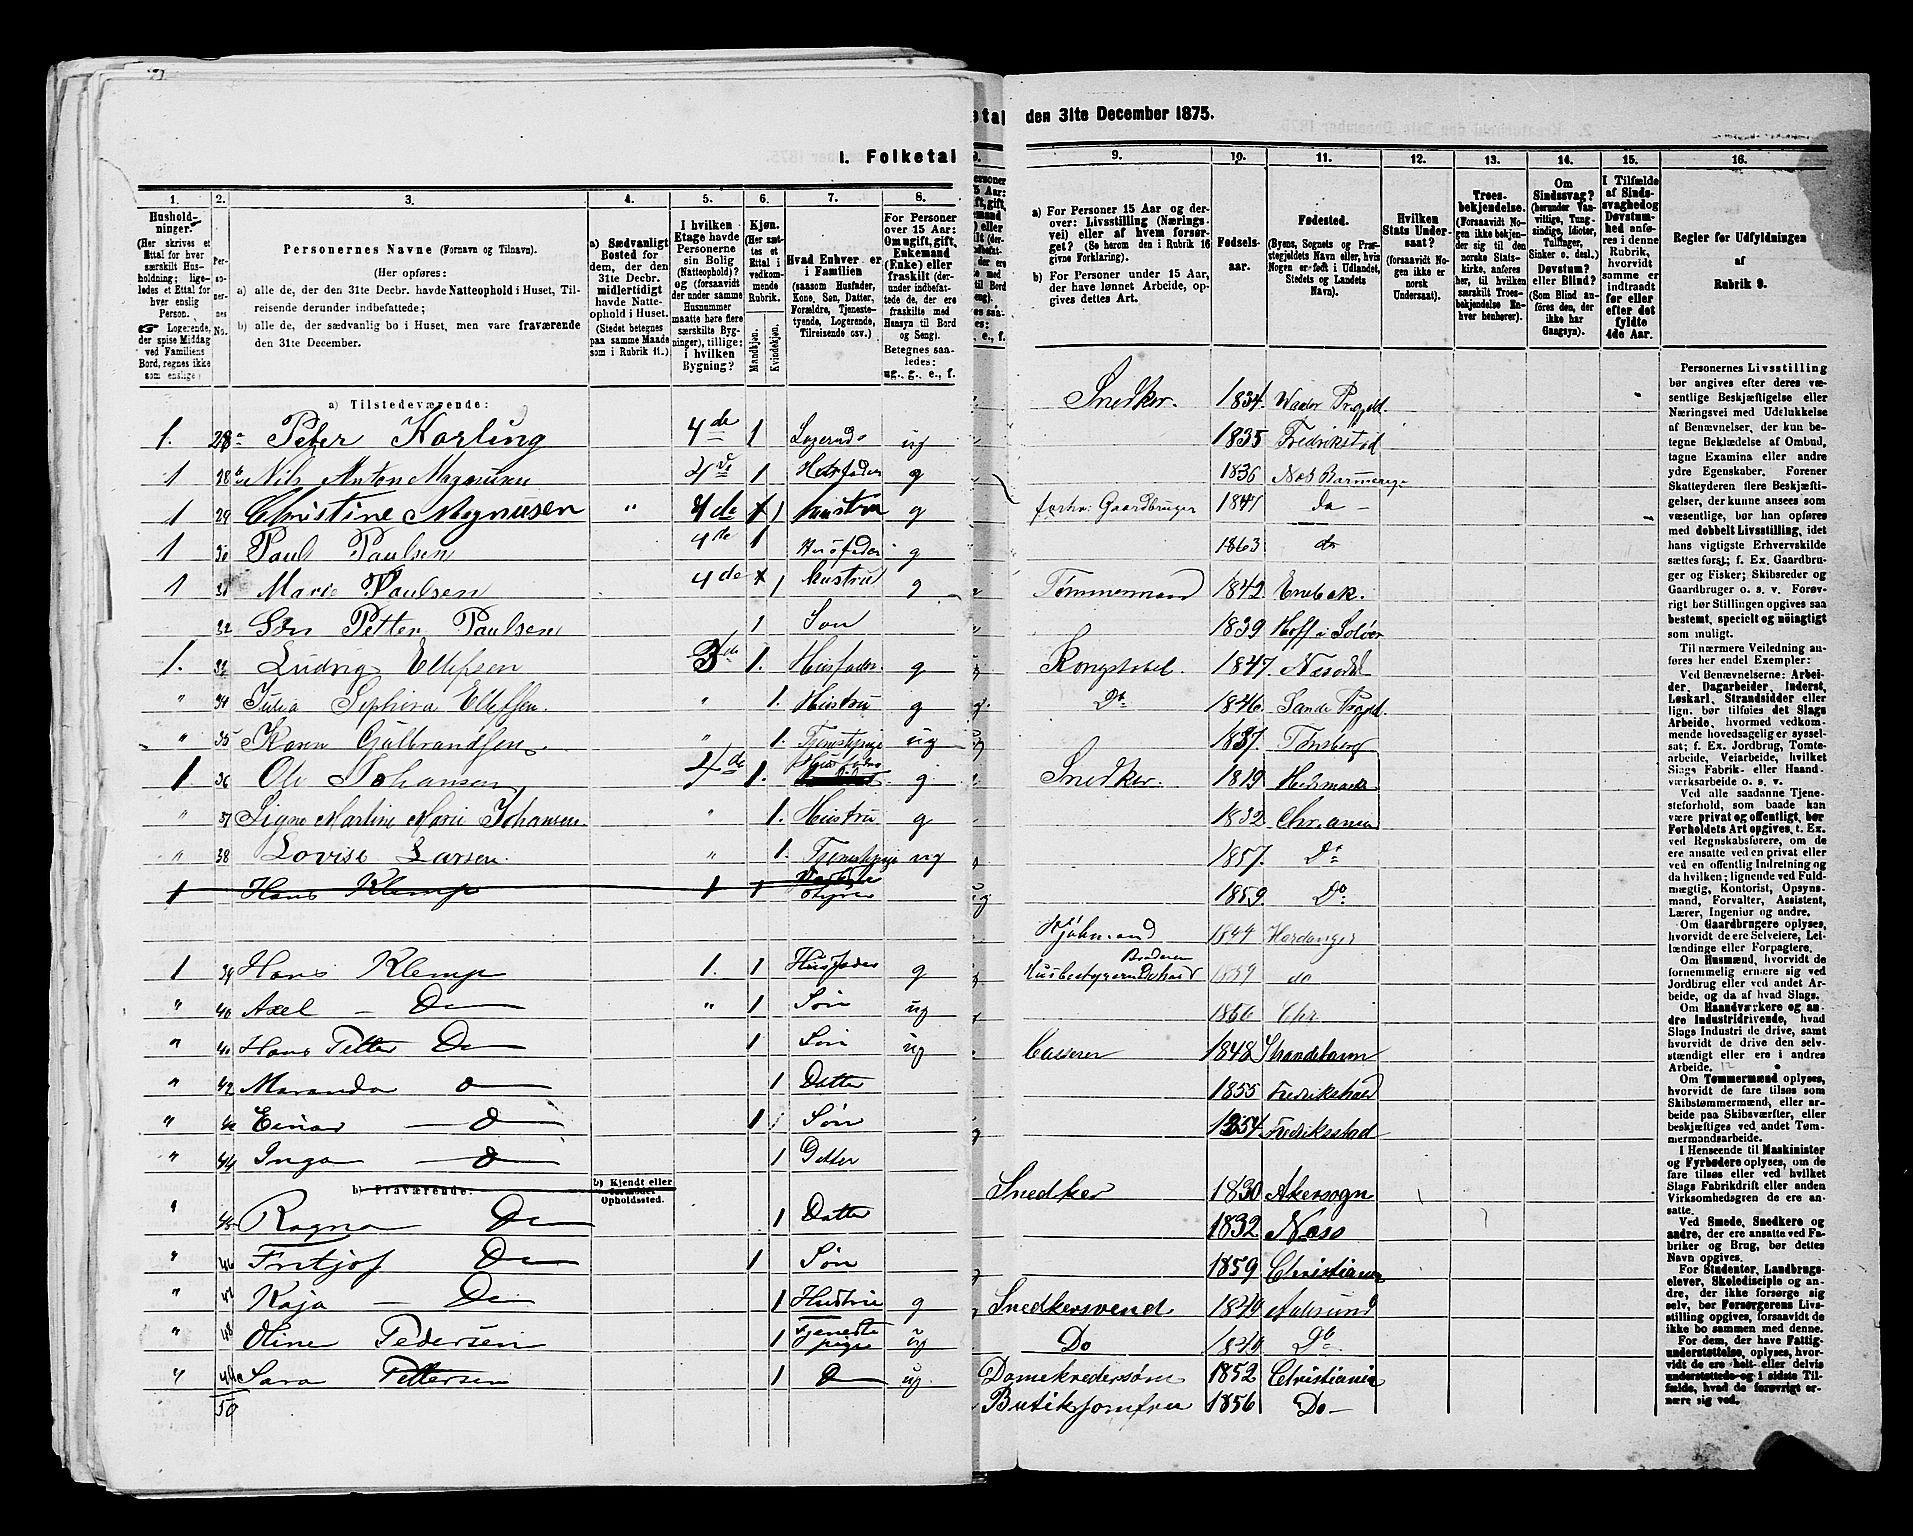 1. Folketal
etal den 31te December 1875.
1. 2. 3. 4. 5. 6. 7. 8.
Hushold-
ninger.
(Her skrives et
Ettal for hver
særskilt Hus-
holdning; lige-
ledes et Ettal for
hver enslig
Person.
☞ Logerende,
der spise Middag
ved Familiens
Bord, regnes ikke
som enslige)
Personernes Navne (Fornavn og Tilnavn).
(Her opføres:
a) alle de, der den 31te Decbr. havde Natteophold i Huset, Til-
reisende derunder indbefattede;
b) alle de, der sædvanlig bo i Huset, men vare fraværende
den 31te December.
a) Sædvanligt
Bosted for
dem, der den
31te Decbr. havde
midlertidigt
Natte-
ophold i Huset.
(Stedet betegnes
paa samme Maade
som i Rubrik 11.)
I hvilken
Etage havde
Personerne
sin Bolig
(Natteophold)?
og (forsaavidt
der under samme
Husnummer
maatte høre flere
særskilte Byg-
ninger), tillige:
i hvilken
Bygning?
Kjøn.
(Her sæt-
tes et
Ettal i
vedkom-
mende
Rubrik.
Mandkjøn.
Kvindekjøn.
Hvad Enhver er
i Familien
(saasom Husfader,
Kone, Søn, Datter,
Forældre, Tjeneste-
tyende, Logerende,
Tilreisende osv.)
For Personer
over 15 Aar:
Om ugift, gift,
Enkemand
(Enke) eller
fraskilt (der-
under indbefat-
tede de, der ere
fraskilte med
Hensyn til Bord
og Seng).
Betegnes saa-
ledes:
ug., g., e., f.
a) Tilstedeværende:
1. 28a Peter Karling 4de 1 Logerende ug
1 28b Nils Anton Magnusen 4de 1 Husfader g
1 29 Christine Magnusen " 4de 1 hustru g
1 30 Paul Paulsen 4de 1 Husfader g
1 31 Marie Paulsen 4de 1 hustru g
32 Søn Petter Paulsen 1 Søn
1. 33 Ludvig Ellefsen 3de 1. Husfader g
" 34 Julia Sephora Ellefsen. " 1. Hustru g
" 35 Karen Gulbrandsen " 1. Tjenestepige ug
1 36 Ole Johansen 4de 1. g
" 37 Signe Martine Marie Johansen. " 1. Hustru g
" 38 Lovise Larsen. " 1. Tjenestepige ug
1 Hans Klemp 1 1
1 39 Hans Klemp 1. 1 Husfader g
" 40 Axel — Do " 1 Søn ug
" 41 Hans Petter Do 1 Søn ug
" 42 Maranda Do 1 Datter
" 43 Einar — Do 1 Søn
" 44 Inga — Do 1 Datter
b) Fraværende: b) Kjendt eller
formodet
Opholdssted.
" 45 Ragna Do 1 Datter
" 46 Fritjof Do 1 Søn
" 47 Kaja — Do 1 Hustru g
" 48 Oline Pedersen 1 Tjeneste
pige ug
" 49 Sara Pettersen 1 Do ug
50
9. 10. 11. 12. 13. 14. 15. 16.
a) For Personer 15 Aar og der-
over: Livsstilling (Nærings-
vei) eller af hvem forsør-
get? (Se herom den i Rubrik 16
givne Forklaring).
b) For Personer under 15 Aar,
der have lønnet Arbeide, op-
gives dettes Art.
Fødsels-
aar.
Fødested.
(Byens, Sognets og Præ-
stegjeldets Navn eller, hvis
Nogen er født i Udlandet,
Stedets og Landets
Navn).
Hvilken
Stats Under-
saat?
(forsaavidt No-
gen ikke er norsk
Undersaat).
Troes-
bekjendelse.
(Forsaavidt No-
gen ikke bekjen-
der sig til den
norske Stats-
kirke, anføres
her, til hvilken
særskilt Troes-
bekjendelse En-
hver henhører).
Om
Sindssvag?
(herunder Van-
vittige, Tung-
sindige, Idioter,
Tullinger,
Sinker o. desl.)
Døvstum?
eller Blind?
(Som Blind an-
føres den, der
ikke har
Gangsyn).
I Tilfælde
af Sinds-
svaghed og
Døvstum-
hed anfø-
res i denne
Rubrik,
hvorvidt
samme er
indtraadt
før eller
efter det
fyldte
4de Aar.
Regler før Udfyldningen
af
Rubrik 9.
Snedker. 1834. Præstgjeld.
1835 Fredrikstad
1836
forhv: Gaardbruger 1841 do —
1863 do
Tømmermand 1842. Enebak.
1839 Hoff i Solør
Kongstabel 1847. Næsodd
Do 1846. Sande Præstgjeld.
1837. Tønsberg
Snedker. 1819 Hedemark
1832
1857. Do
1859. Do
1844 Hardanger
1839 do
1866 Chr.
Casserer 1848 Strandebarm
1855 Fredrikshald
1854 Fredriksstad
Snedker 1830 Akersogn
1832 Næso
1859 Christiania
Snedkersvend 1840 Aalesund
Do 1840 Do
1852 Christiania
Butikjomfru 1856 Do —
Personernes Livsstilling
bør angives efter deres væ-
sentlige Beskjæftigelse eller
Næringsvei med Udelukkelse
af Benævnelser, der kun be-
tegne Beklædelse af Ombud,
tagne Examina eller andre
ydre Egenskaber. Forener
Skatteyderen flere Beskjæfti-
gelser, der kunne ansees som
væsentlige, bør han opføres
med dobbelt Livsstilling, idet
hans vigtigste Erhvervskilde
sættes først; f. Ex. Gaardbru-
ger og Fisker; Skibsreder og
Gaardbruger o. s. v. Forøv-
rigt bør Stillingen opgives saa
bestemt, specielt og nøiagtigt
som muligt.
Til nærmere Veiledning an-
føres her endel Exempler:
Ved Benævnelserne: Arbei-
der, Dagarbeider, Inderst,
Løskarl, Strandsidder eller
lign. bør tilføies det Slags
Arbeide, hvormed vedkom-
mende hovedsagelig er syssel-
sat; f. Ex. Jordbrug, Tomte-
arbeide, Veiarbeide, hvilket
Slags Fabrik- eller Haand-
værksarbeide o. s. v.
Ved alle saadanne Tjene-
steforhold, som baade kan
være privat og offentligt, bør
Forholdets Art opgives, t. Ex.
ved Regnskabsførere, om de
ere ansatte ved en privat eller
en offentlig Indretning og
da hvilken; lignende ved Fuld-
mægtig, Kontorist, Opsyns-
mand, Forvalter, Assistent,
Lærer, Ingeniør og andre.
Om Gaardbrugere oplyses,
hvorvidt de ere Selveiere, Lei-
lændinge eller Forpagtere.
Om Husmænd, hvorvidt de
fornemmelig ernære sig ved
Jordbrug eller ved andet Ar-
beide, og da af hvad Slags.
Om Haandværkere og an-
dre Industridrivende, hvad
Slags Industri de drive, samt
hvorvidt de drive den selv-
stændigt eller ere i andres
Arbeide.
Om Tømmermænd oplyses,
hvorvidt de fare tilsøs som
Skibstømmermænd, eller ar-
beide paa Skibsværfter, eller
beskjæftiges ved andet Tøm-
mermandsarbeide.
I Henseende til Maskinister
og Fyrbødere oplyses, om de
fare tilsøs eller ved hvilket
Slags Fabrikdrift eller anden
Virksomhedsgren de ere an-
satte.
Ved Smede, Snedkere og
andre, der ere ansatte ved Fa-
briker og Brug, bør dettes
Navn opgives.
For Studenter, Landbrugs-
elever, Skoledisciple og an-
dre, der ikke forsørge sig
selv, bør Forsørgerens Livs-
stilling opgives, forsaavidt de
ikke bo sammen med denne.
For dem, der have Fattig-
understøttelse, oplyses, hvor-
vidt de ere helt eller delvis
understøttede og i sidste Til-
fælde, hvad de forøvrigt er-
nære sig ved.